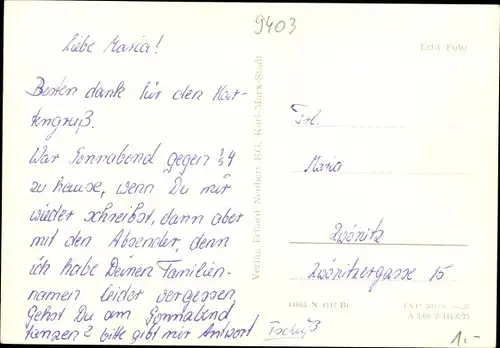 9403
Liebe Maria!
Besten dank für den Kar-
tengruß.
War Sonnabend gegen ½4
zu hause, wenn Du mir
wieder schreibst, dann aber
mit den Absender, denn
ich habe Deinen Familien-
namen leider vergessen.
Gehst Du am Sonnabend
tanzen? bitte gibt mir Antwort
Tschüß
Verlag Erhard Neubert KG, Karl-Marx-Stadt
Echt Foto
Frl.
Maria
Zwönitz
Zwönitzergasse 15
1.-